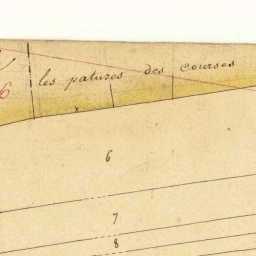 les patures des courses
6
6
7
8